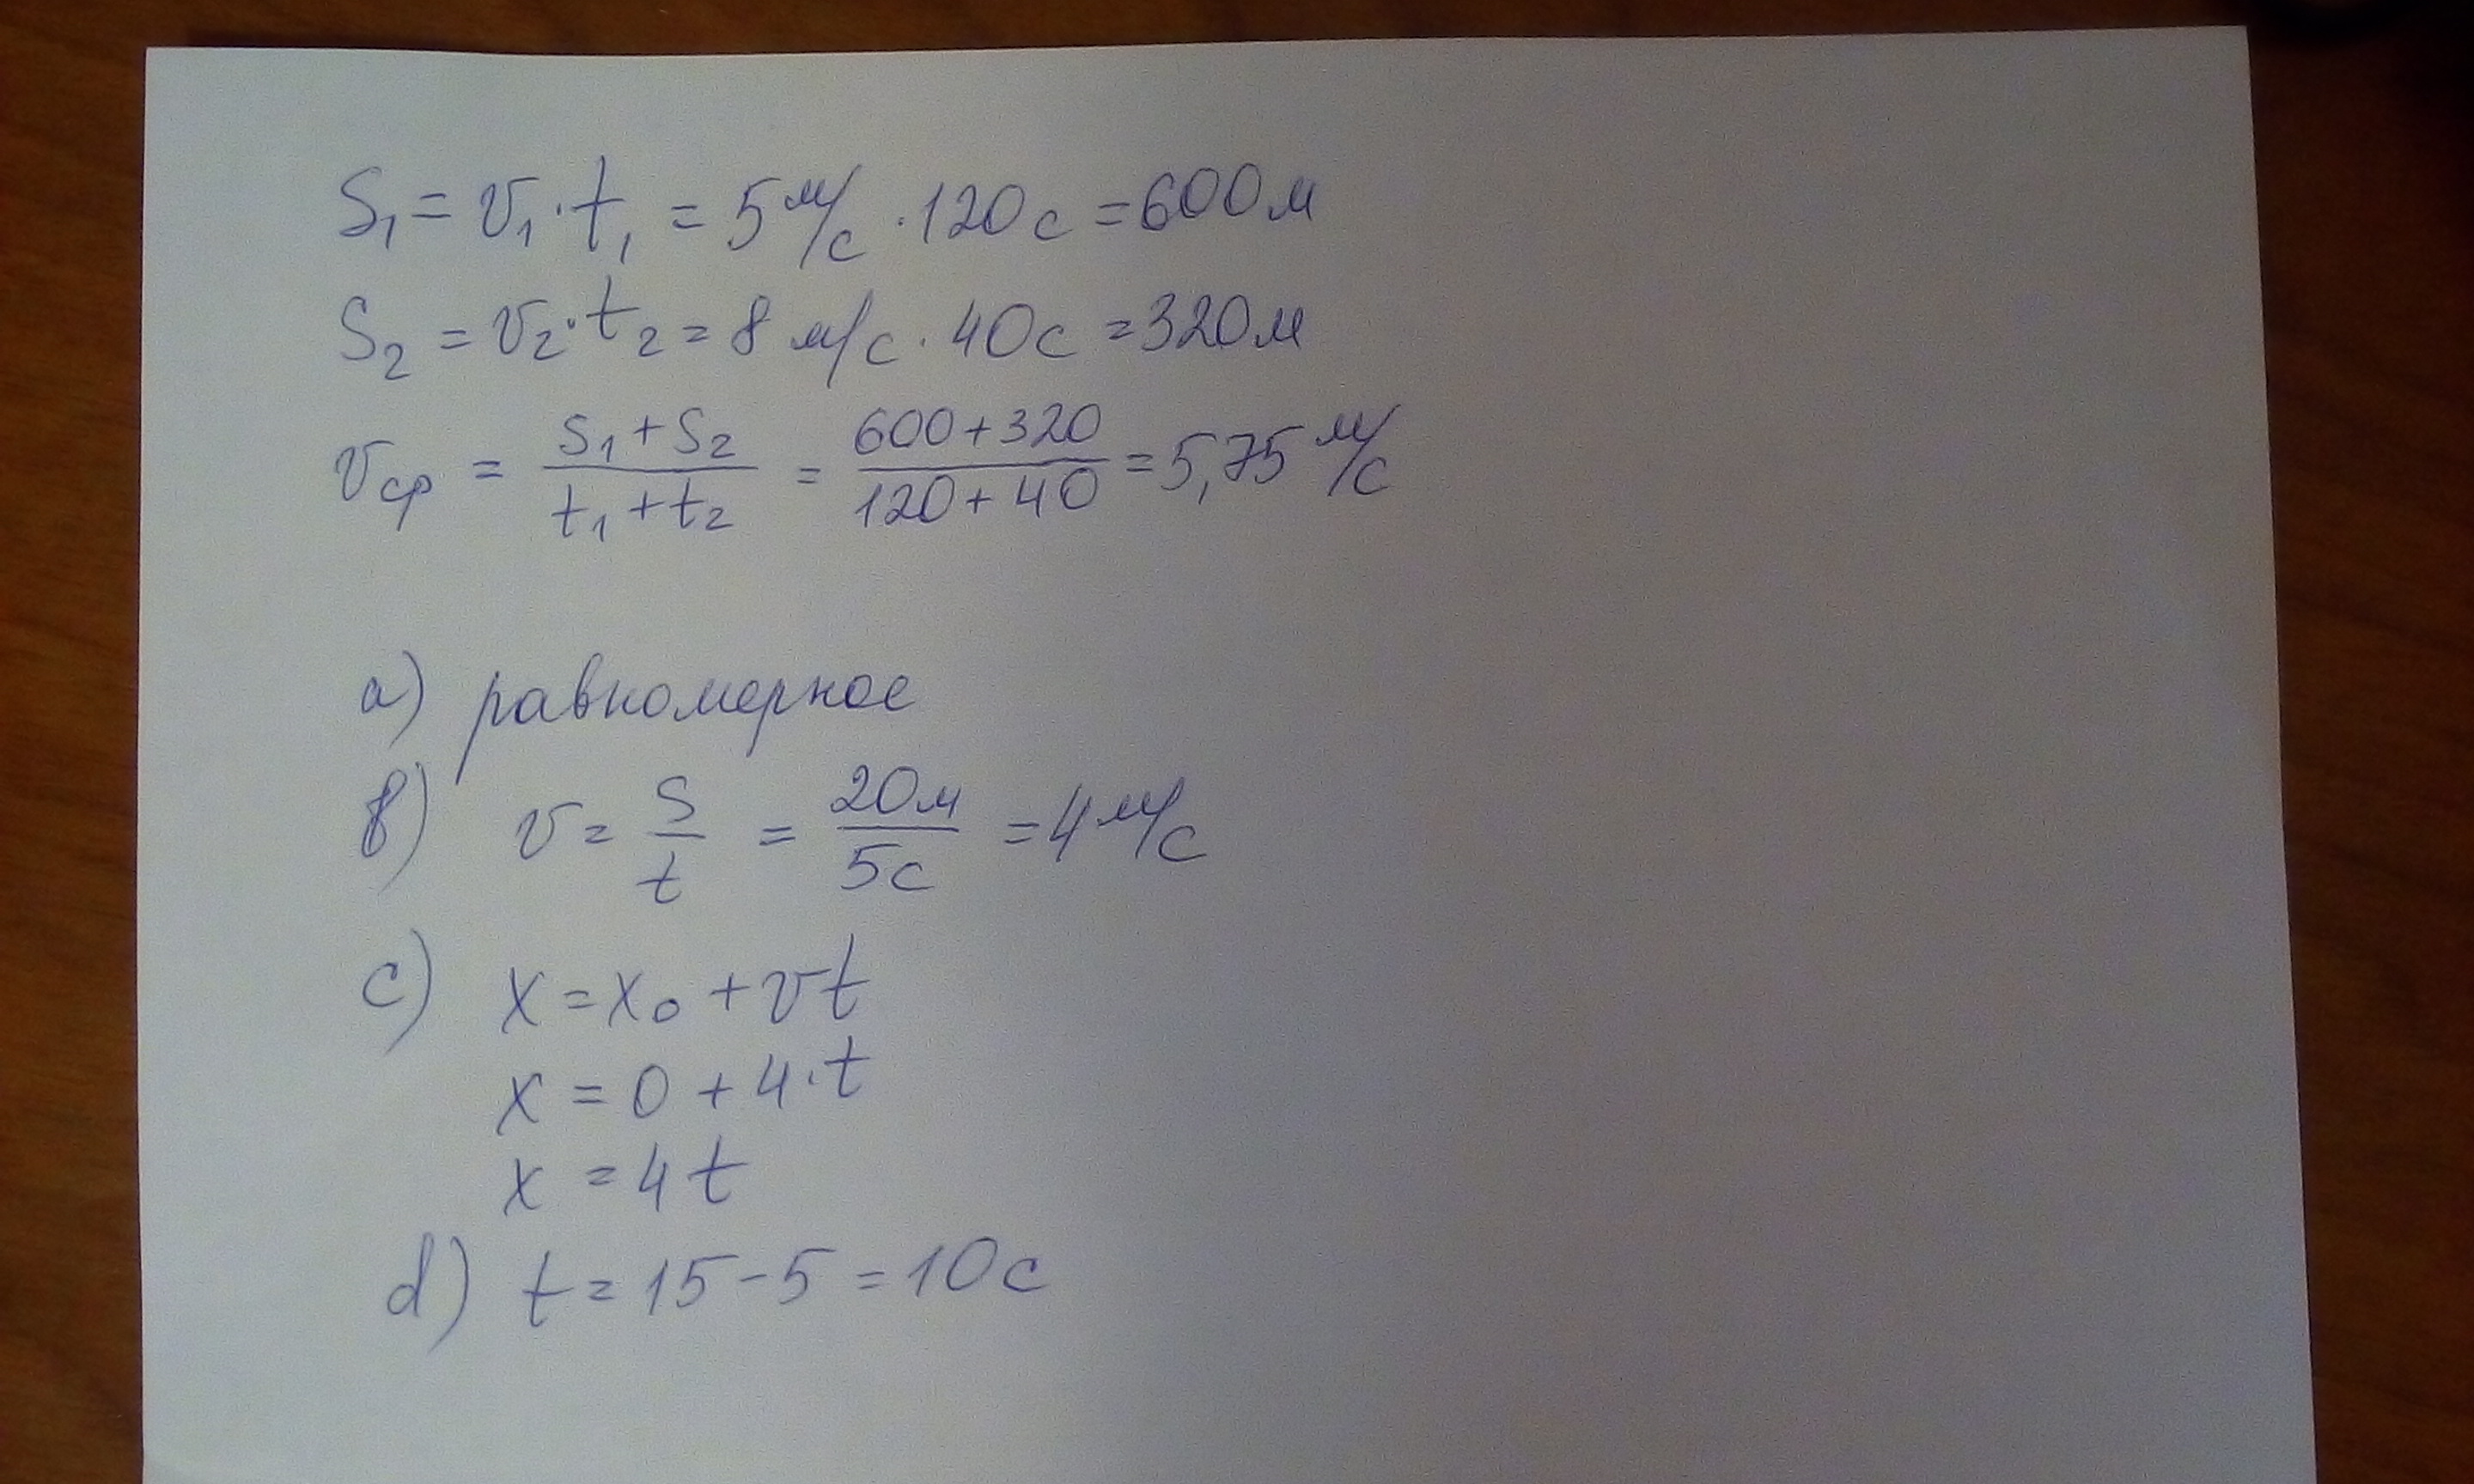 S₁ = v₁·t₁ = 5 м/с · 120 с = 600 м
S₂ = v₂·t₂ = 8 м/с · 40 с = 320 м
vср = (S₁ + S₂)/(t₁ + t₂) = (600 + 320)/(120 + 40) = 5,75 м/с
a) равномерное
b) v = S/t = 20м/5с = 4 м/с
c) x = x₀ + vt
x = 0 + 4·t
x = 4t
d) t = 15 - 5 = 10 с